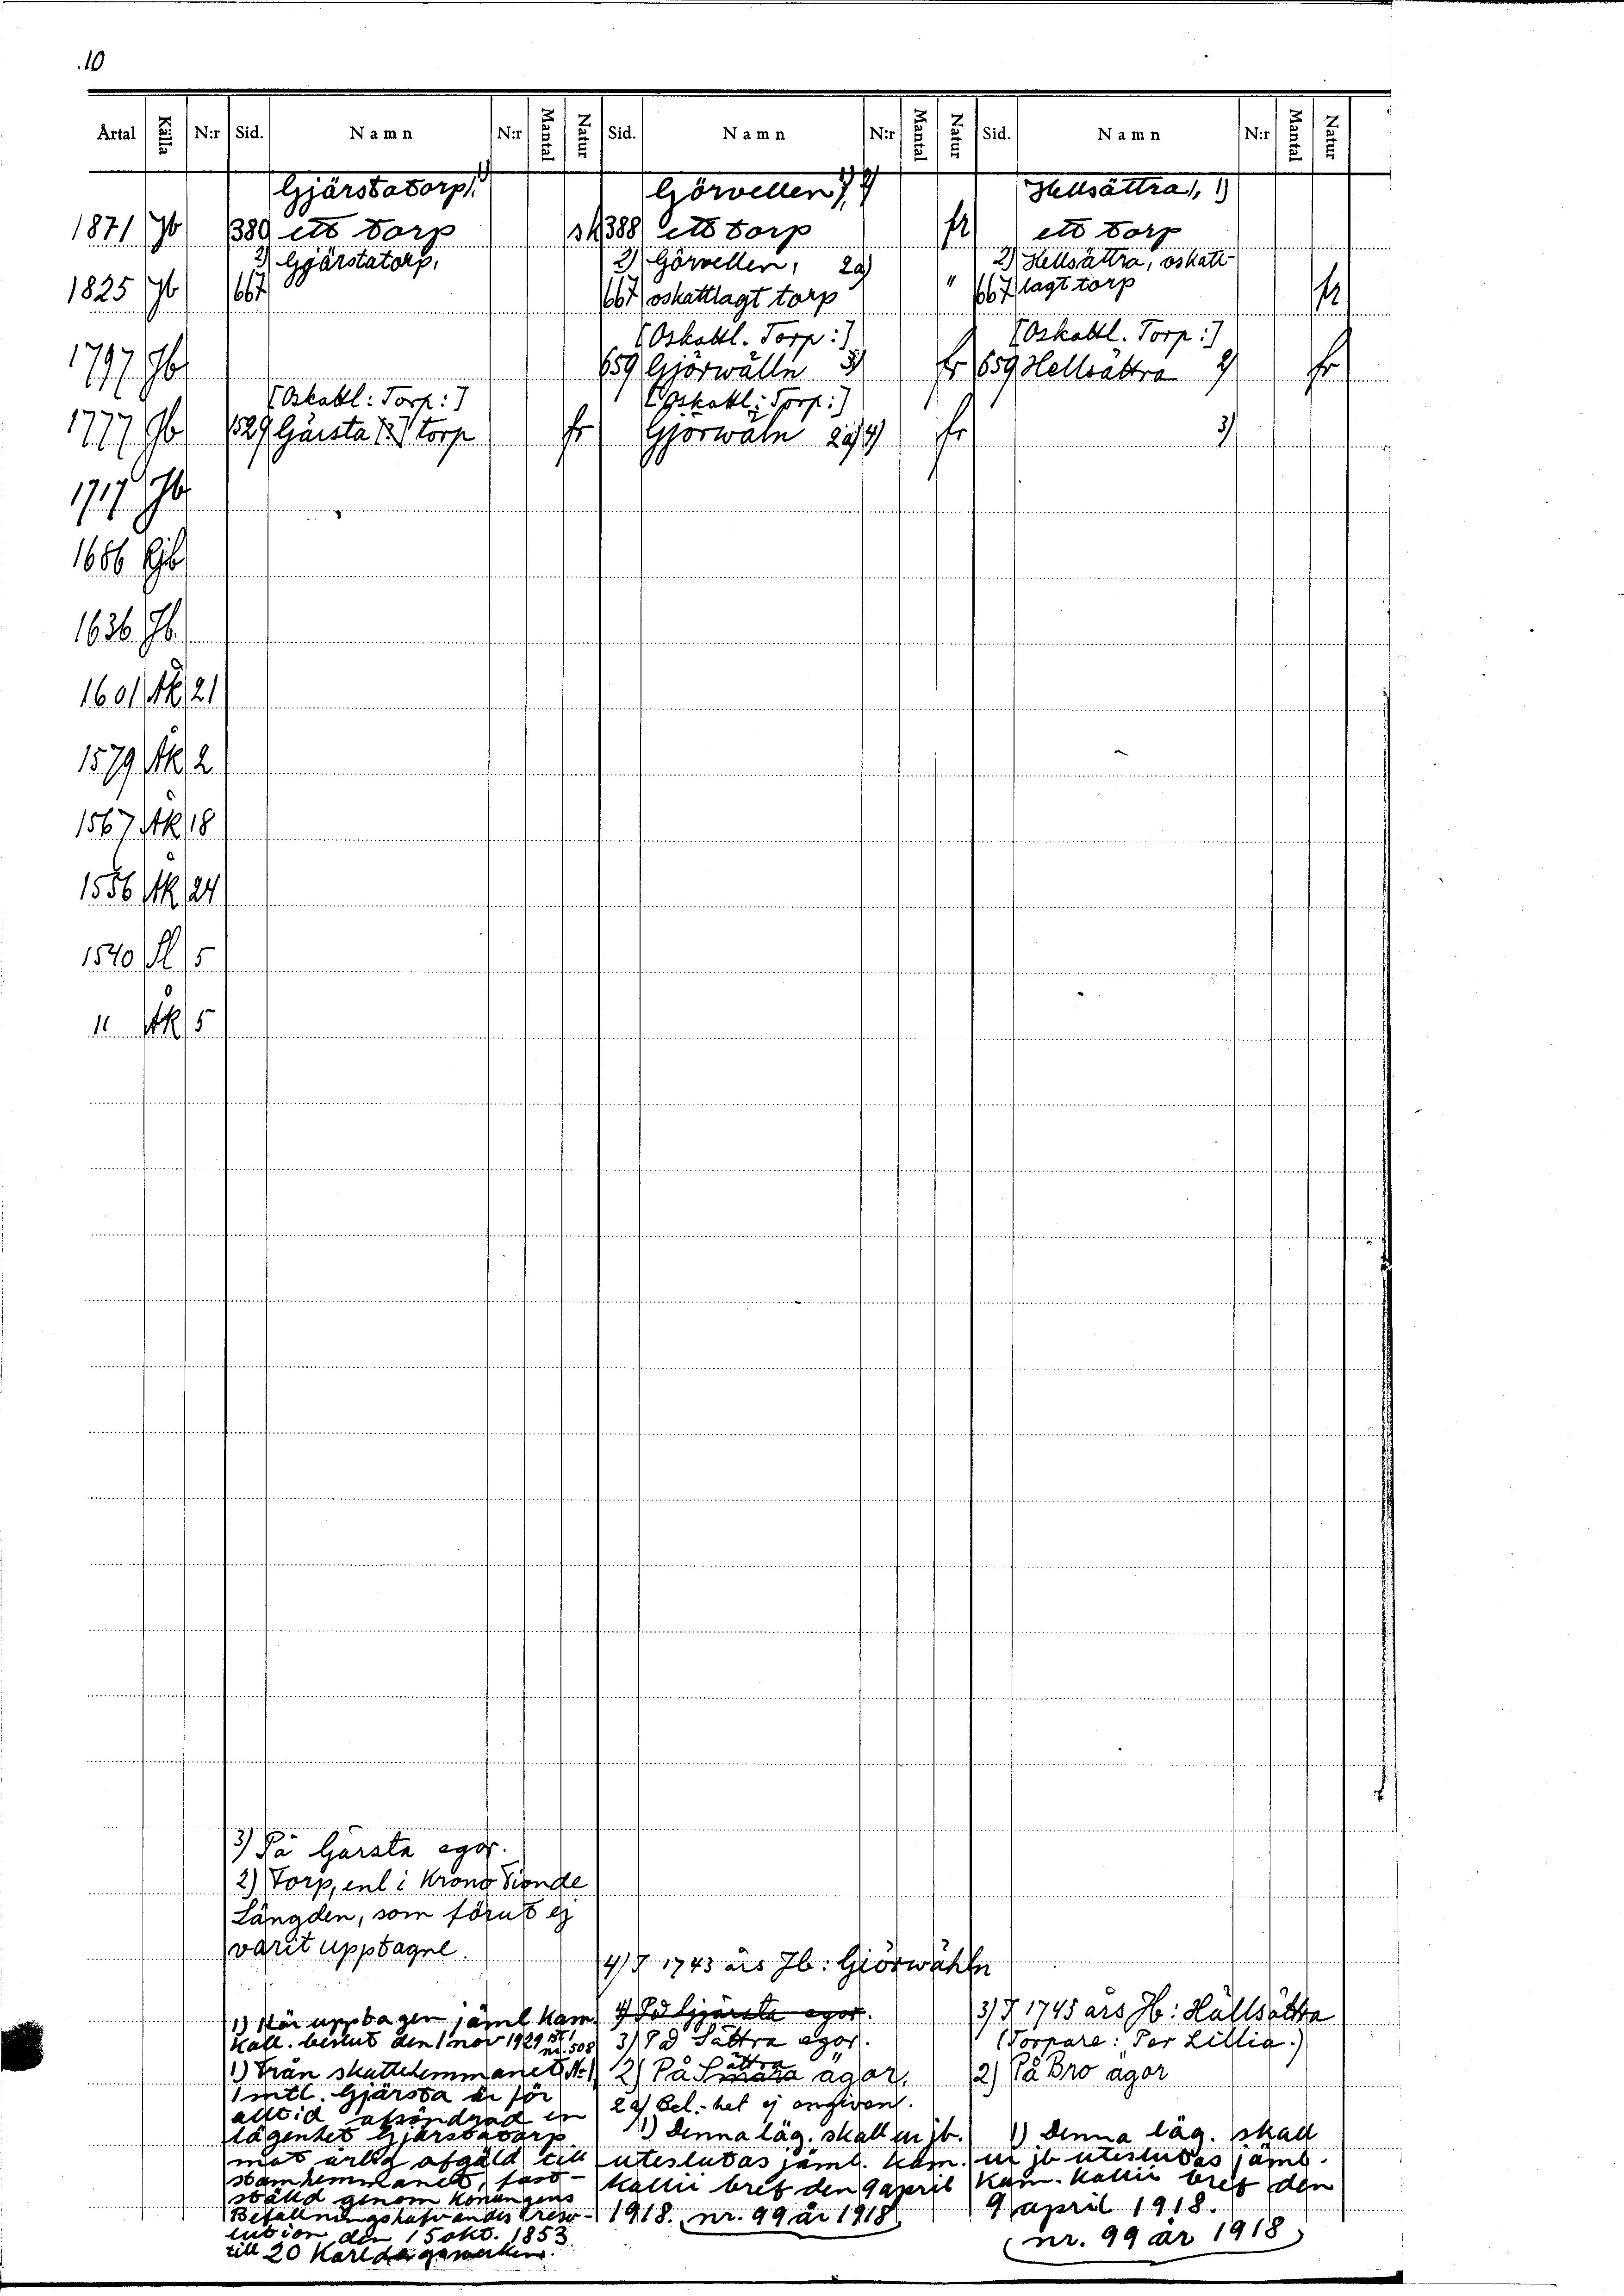 10
Årtal Källa N:r Sid. Namn N:r Mantal Natur Sid. Namn N:r Mantal Natur Sid. Namn N:r Mantal Natur
Gjärstatorp, 1) Görvellen, 1) Hellsättra, 1)
1871 Jb 380 ett torp sk 388 ett torp fr ett torp
2) Gjärstatorp, 2) Görvellen, 2a) 2) Hellsättra, oskatt-
1825 Jb 667 667 oskattlagt torp " 667 lagt torp fr
[Oskattl. Torp:] [Oskattl. Torp:]
1797 Jb 659 Gjörwälln 3) fr 659 Hellsättra 2) fr
[Oskattl: Torp:] [Oskattl: Torp:]
1777 Jb 529 Gärsta torp fr Gjorwäln 2a) 4) fr 3)
1717 Jb
1686 Jb
1636 Jb.
1601 ÅK 21
1579 ÅK 2
1567 ÅK 18
1556 ÅK 24
1540 Sl 5
" ÅK 5
3) På Gärsta egor.
2) Torp, enl i Krono Tionde
Längden, som förut ej
varit upptagne.
1) Här upptagen jäml. Kam.
Koll. beslut den 1 nov 1929 nr. 508
1) Från skattehemmanet N:1
1 mtl. Gjärsta är för
alltid afsöndrad en
lägenhet Gjärstatorp
mot årlig afgäld till
stamhemmanet, fast-
ställd genom Konungens
Befallningshafvandes reso-
lution den 15 okt. 1853
till 20 Karldagsverken.
4) I 1743 års Jb: Giörwähln
4) På Gjärsta egor.
3) På Sättra egor.
2) På Sättra ägor.
2a) Bel.-het ej angiven.
1) Denna läg. skall ur jb.
uteslutas jäml. Kam.
Kollii bref den 9 april
1918. nr. 99 år 1918
3) I 1743 års Jb: Hällsättra
(Torpare: Per Lillia.)
2) På Bro ägor
1) Denna läg. skall
ur jb uteslutas jäml.
Kam. Kollii bref den
9 april 1918.
nr. 99 år 1918